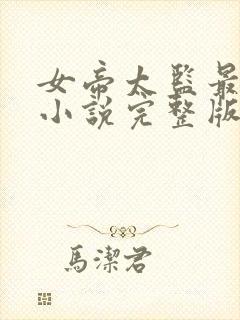 女帝太監最
小說完整版
馬潔君